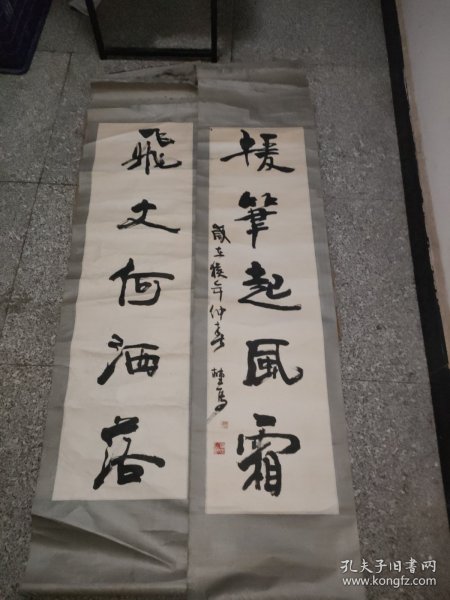 援筆起風霜
歲在猴年仲春
飛文何洒落
孔夫子旧书网
www.kongfz.com